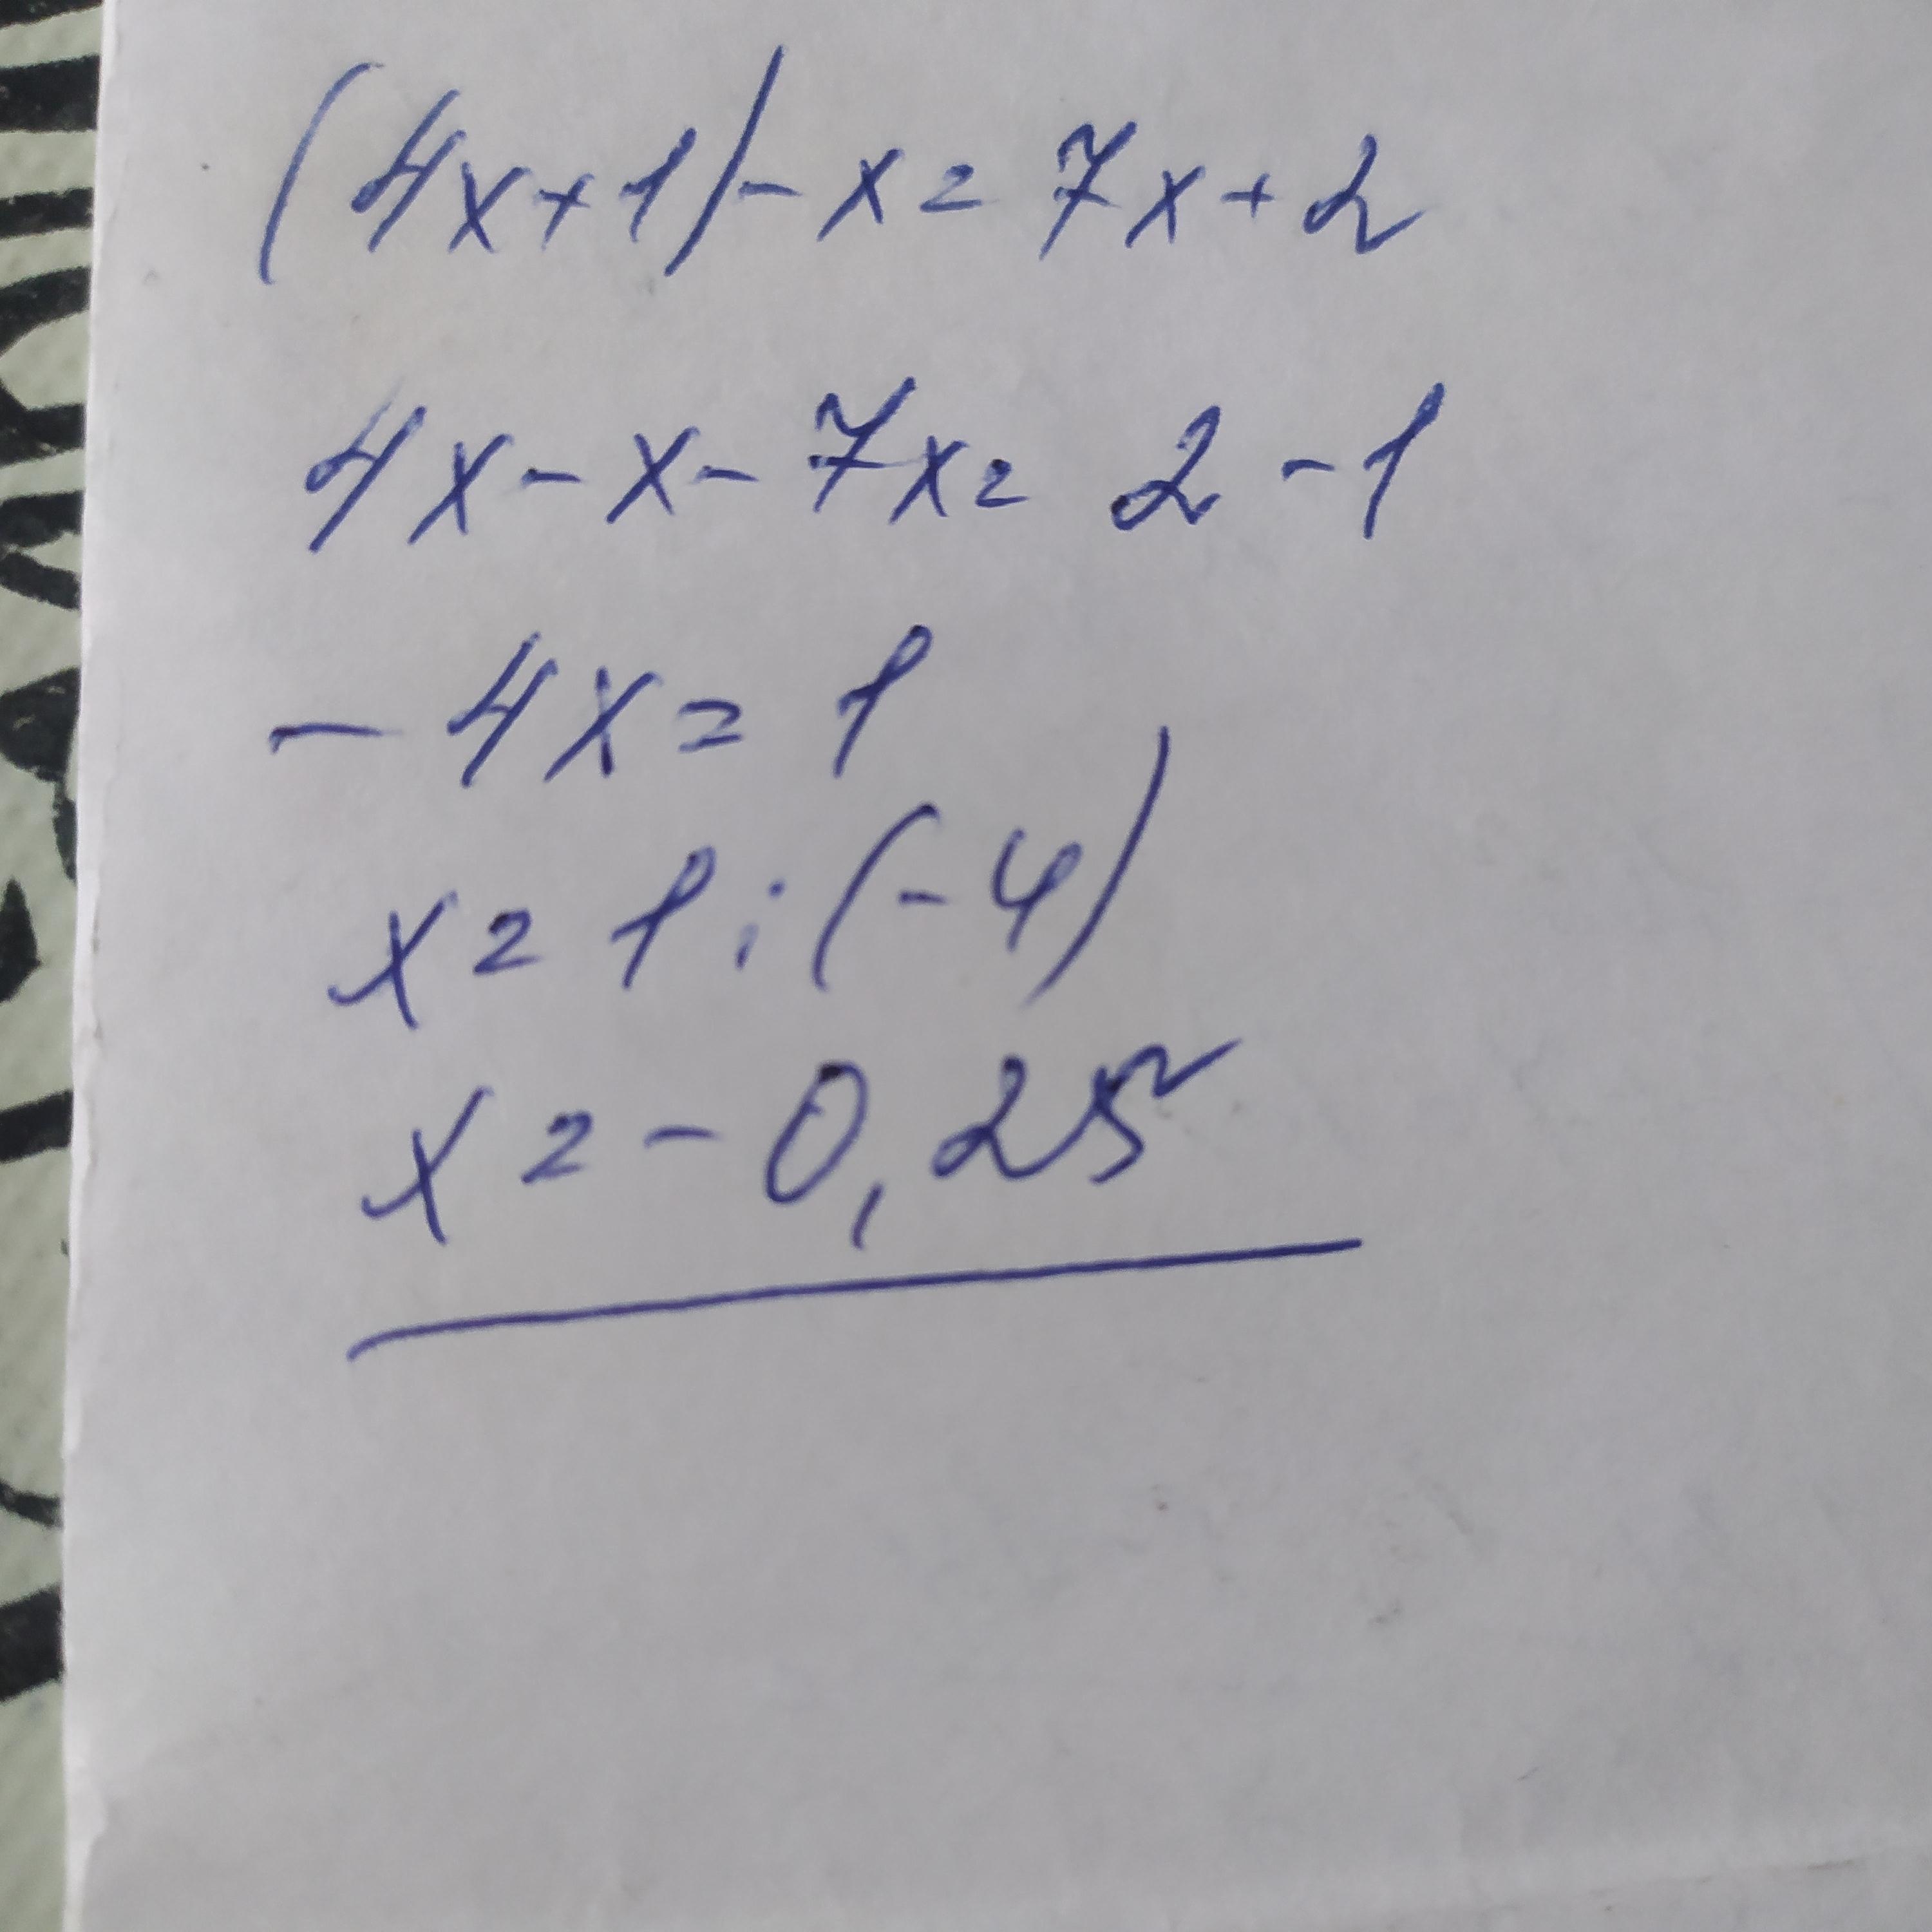 (4x+1)-x=7x+2
4x-x-7x=2-1
-4x=1
x=1:(-4)
x=-0,25